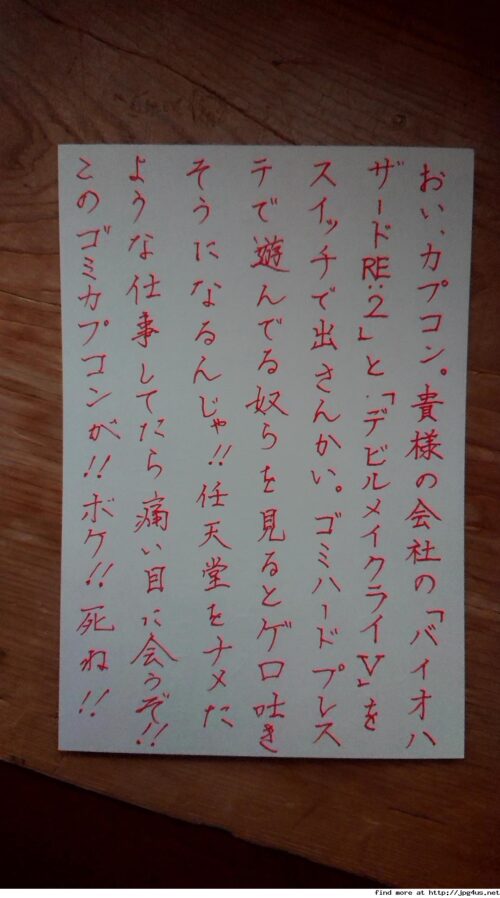 おい、カプコン。貴様の会社の「バイオハ
ザードRE:2」と「デビルメイクライV」を
スイッチで出さんかい。ゴミハードプレス
テで遊んでる奴らを見るとゲロ吐き
そうになるんじゃ!!任天堂をナメた
ような仕事してたら痛い目に会うぞ!!
このゴミカプコンが!!ボケ!!死ね!!
find more at http://jpg4us.net